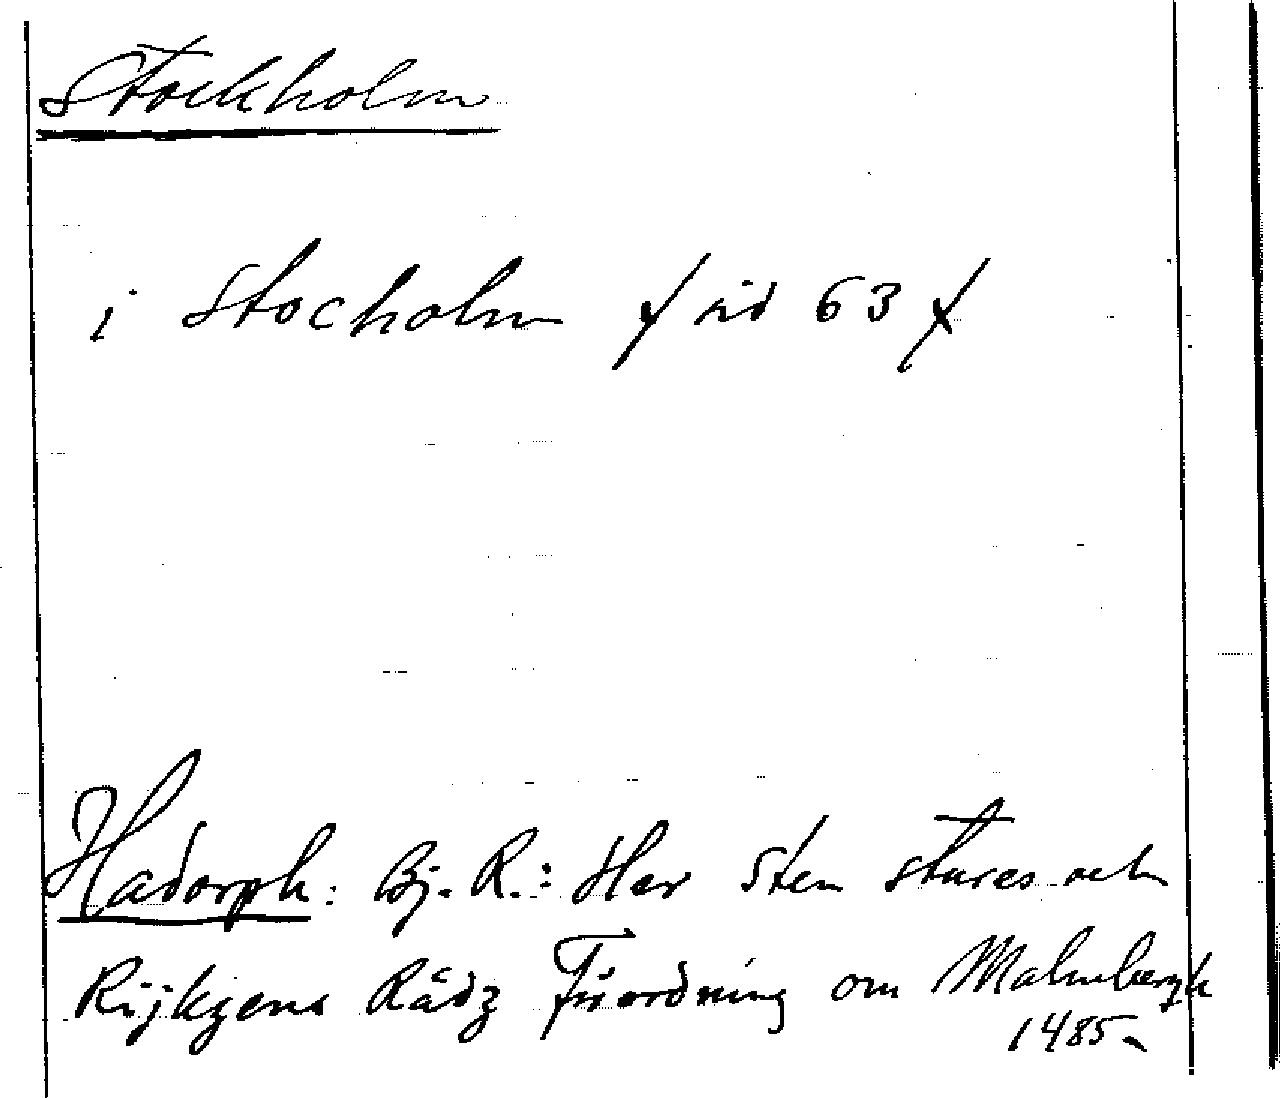 Stockholm
i Stocholm / sid 63 /
Hadorph: Bj. R.: Her Sten Stures och
Rijkzens Rådz Förordning om Malmbergh
1485.